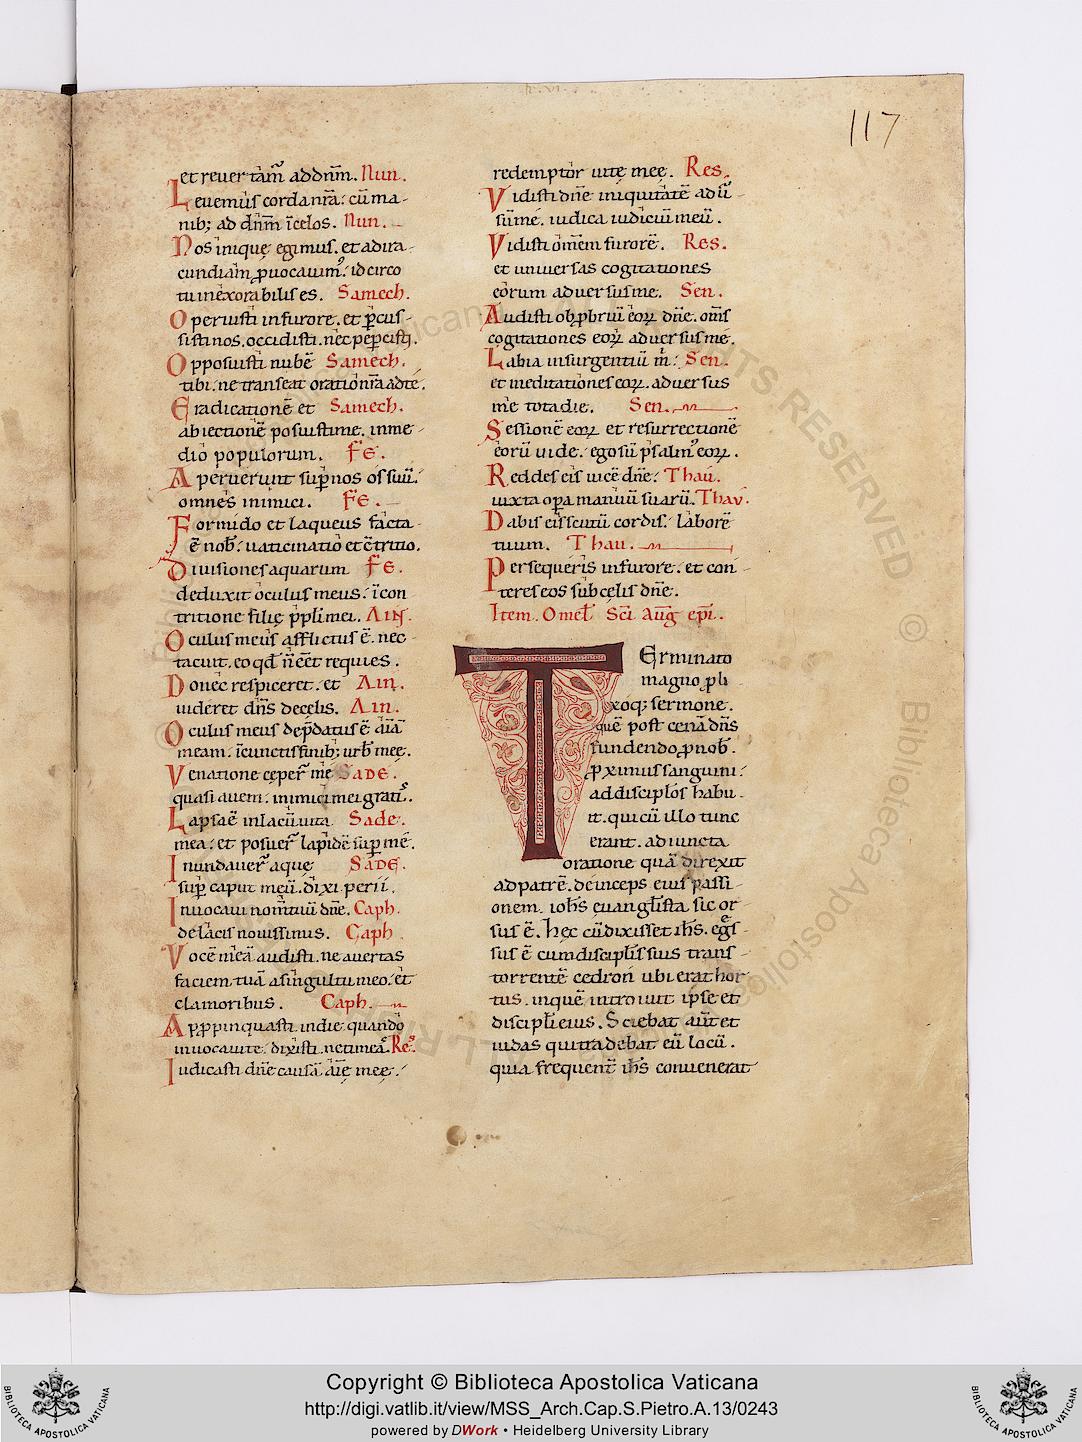 117
et reuertam̃ ad dnm̃. Nun.
Leuemus corda nr̃a: cũ ma-
nib; ad dñm ĩ celos. Nun.
Nos inique egimus. et ad ira-
cundiam ꝓuocauim᷒: idcirco
tu inexorabilis es. Samech.
Operuisti in furore. et ꝑcus-
sisti nos. occidisti. nec peꝑcisti.
Opposuisti nubẽ Samech.
tibi: ne transeat oratio nr̃a ad te.
Eradicationẽ et Samech.
abiectionẽ posuisti me. in me-
dio populorum. Fe.
Aperuerunt suꝑ nos os suũ:
omnes inimici. Fe.
Formido et laqueus facta
ẽ nob̃: uaticinatio et c̃tritio.
Diuisiones aquarum Fe.
deduxit oculus meus: ĩ con
tritione filię ppl̃i mei. Ain.
Oculus meus afflictus ẽ. nec
tacuit. eo qđ ñ eẽt requies.
Donec respiceret. et Ain.
uideret dñs de celis. Ain.
Oculus meus deꝑdatus ẽ aĩã
meam: ĩ cunctis filiab; urb̃ meę.
Venatione ceper̃ me SADE.
quasi auem: inimici mei gratis.
Lapsa ẽ in lacũ uita Sade.
mea: et posuer̃ lapidẽ suꝑ me.
Inundauer̃ aquę SADE.
suꝑ caput meũ. dixi perii.
Inuocaui nom̃ tuũ dñe. Caph.
de lacis nouissimus. Caph.
Vocẽ meã audisti. ne auertas
faciem tuã a singultu meo: et
clamoribus. Caph.
Appropinquasti in die quando
inuocaui te: dixisti. ne timeas. Res.
Iudicasti dñe causã aĩę meę:
redemptor uitę meę. Res.
Vidisti dñe iniquitatẽ adũ
sũ me. iudica iudiciũ meũ.
Vidisti om̃em furorẽ. Res.
et uniuersas cogitationes
eorum aduersus me. Sen.
Audisti obꝓbriũ eoꝝ dñe. om̃s
cogitationes eoꝝ aduersus me.
Labia insurgentiũ m̃: Sen.
et meditationes eoꝝ. aduersus
me tota die. Sen.
Sessionẽ eoꝝ et resurrectionẽ
eorũ uide: ego sũ psalm᷒ eoꝝ.
Reddes eis uicẽ dñe: Thau.
iuxta oꝑa manuũ suarũ. Thau.
Dabis eis scutũ cordis: laborẽ
tuum. Thau.
Persequeris in furore. et con-
teres eos sub celis dñe.
Item. Omel̃ Sc̃i Aug̃ ep̃i.
TErminato
magno ꝓli
xoq; sermone.
quẽ post cenã dñs
fundendo ꝓ nob̃.
ꝓximus sanguini:
ad discipłos habu-
it. qui cũ illo tunc
erant. adiuncta
oratione quã direxit
ad patrẽ. deinceps eius passi-
onem. ioh̃s euangl̃ista sic or-
sus ẽ. Hęc cũ dixisset ih̃s. egres
sus ẽ cum discipl̃is suis trans
torrentẽ cedron ubi erat hor-
tus. in quẽ introiuit ipse et
discipl̃i eius. Sciebat aut̃ et
iudas qui tradebat eũ locũ.
quia frequent̃ ih̃s conuenerat
Copyright © Biblioteca Apostolica Vaticana
http://digi.vatlib.it/view/MSS_Arch.Cap.S.Pietro.A.13/0243
powered by DWork • Heidelberg University Library
BIBLIOTECA APOSTOLICA VATICANA
BIBLIOTECA APOSTOLICA VATICANA